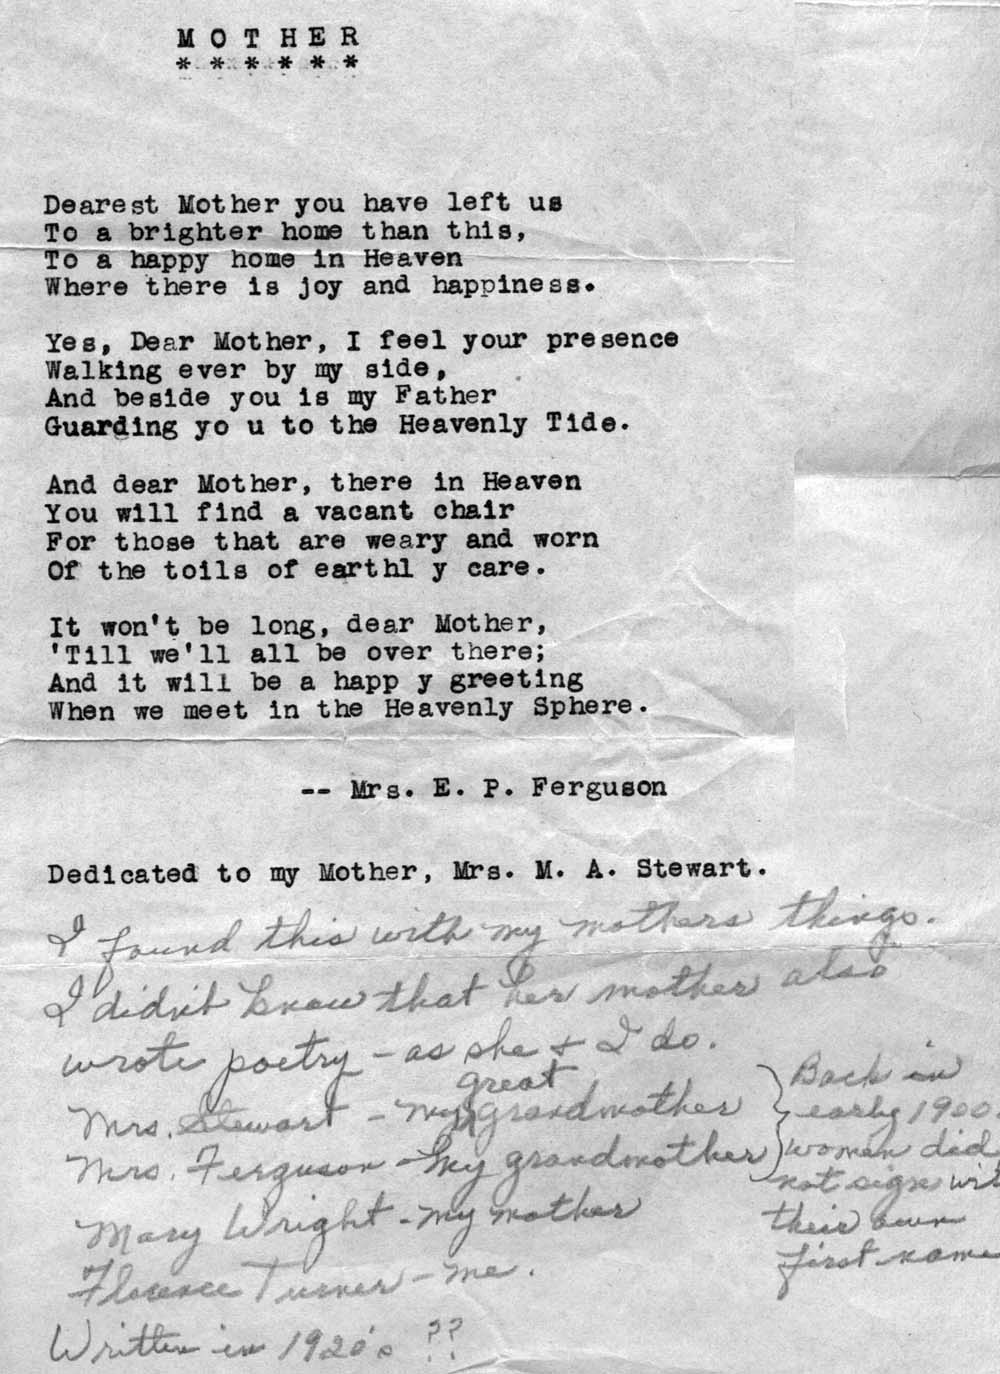 M O T H E R
* * * * * *
Dearest Mother you have left us
To a brighter home than this,
To a happy home in Heaven
Where there is joy and happiness.
Yes, Dear Mother, I feel your presence
Walking ever by my side,
And beside you is my Father
Guarding yo u to the Heavenly Tide.
And dear Mother, there in Heaven
You will find a vacant chair
For those that are weary and worn
Of the toils of earthl y care.
It won't be long, dear Mother,
'Till we'll all be over there;
And it will be a happ y greeting
When we meet in the Heavenly Sphere.
-- Mrs. E. P. Ferguson
Dedicated to my Mother, Mrs. M. A. Stewart.
I found this with my mothers things.
I didn't know that her mother also
wrote poetry - as she & I do.
Mrs. Stewart - my great grandmother
Mrs. Ferguson - my grandmother
Mary Wright - my mother
Florence Turner - me.
Written in 1920's ??
Back in
early 1900
women did
not sign wit
their own
first name